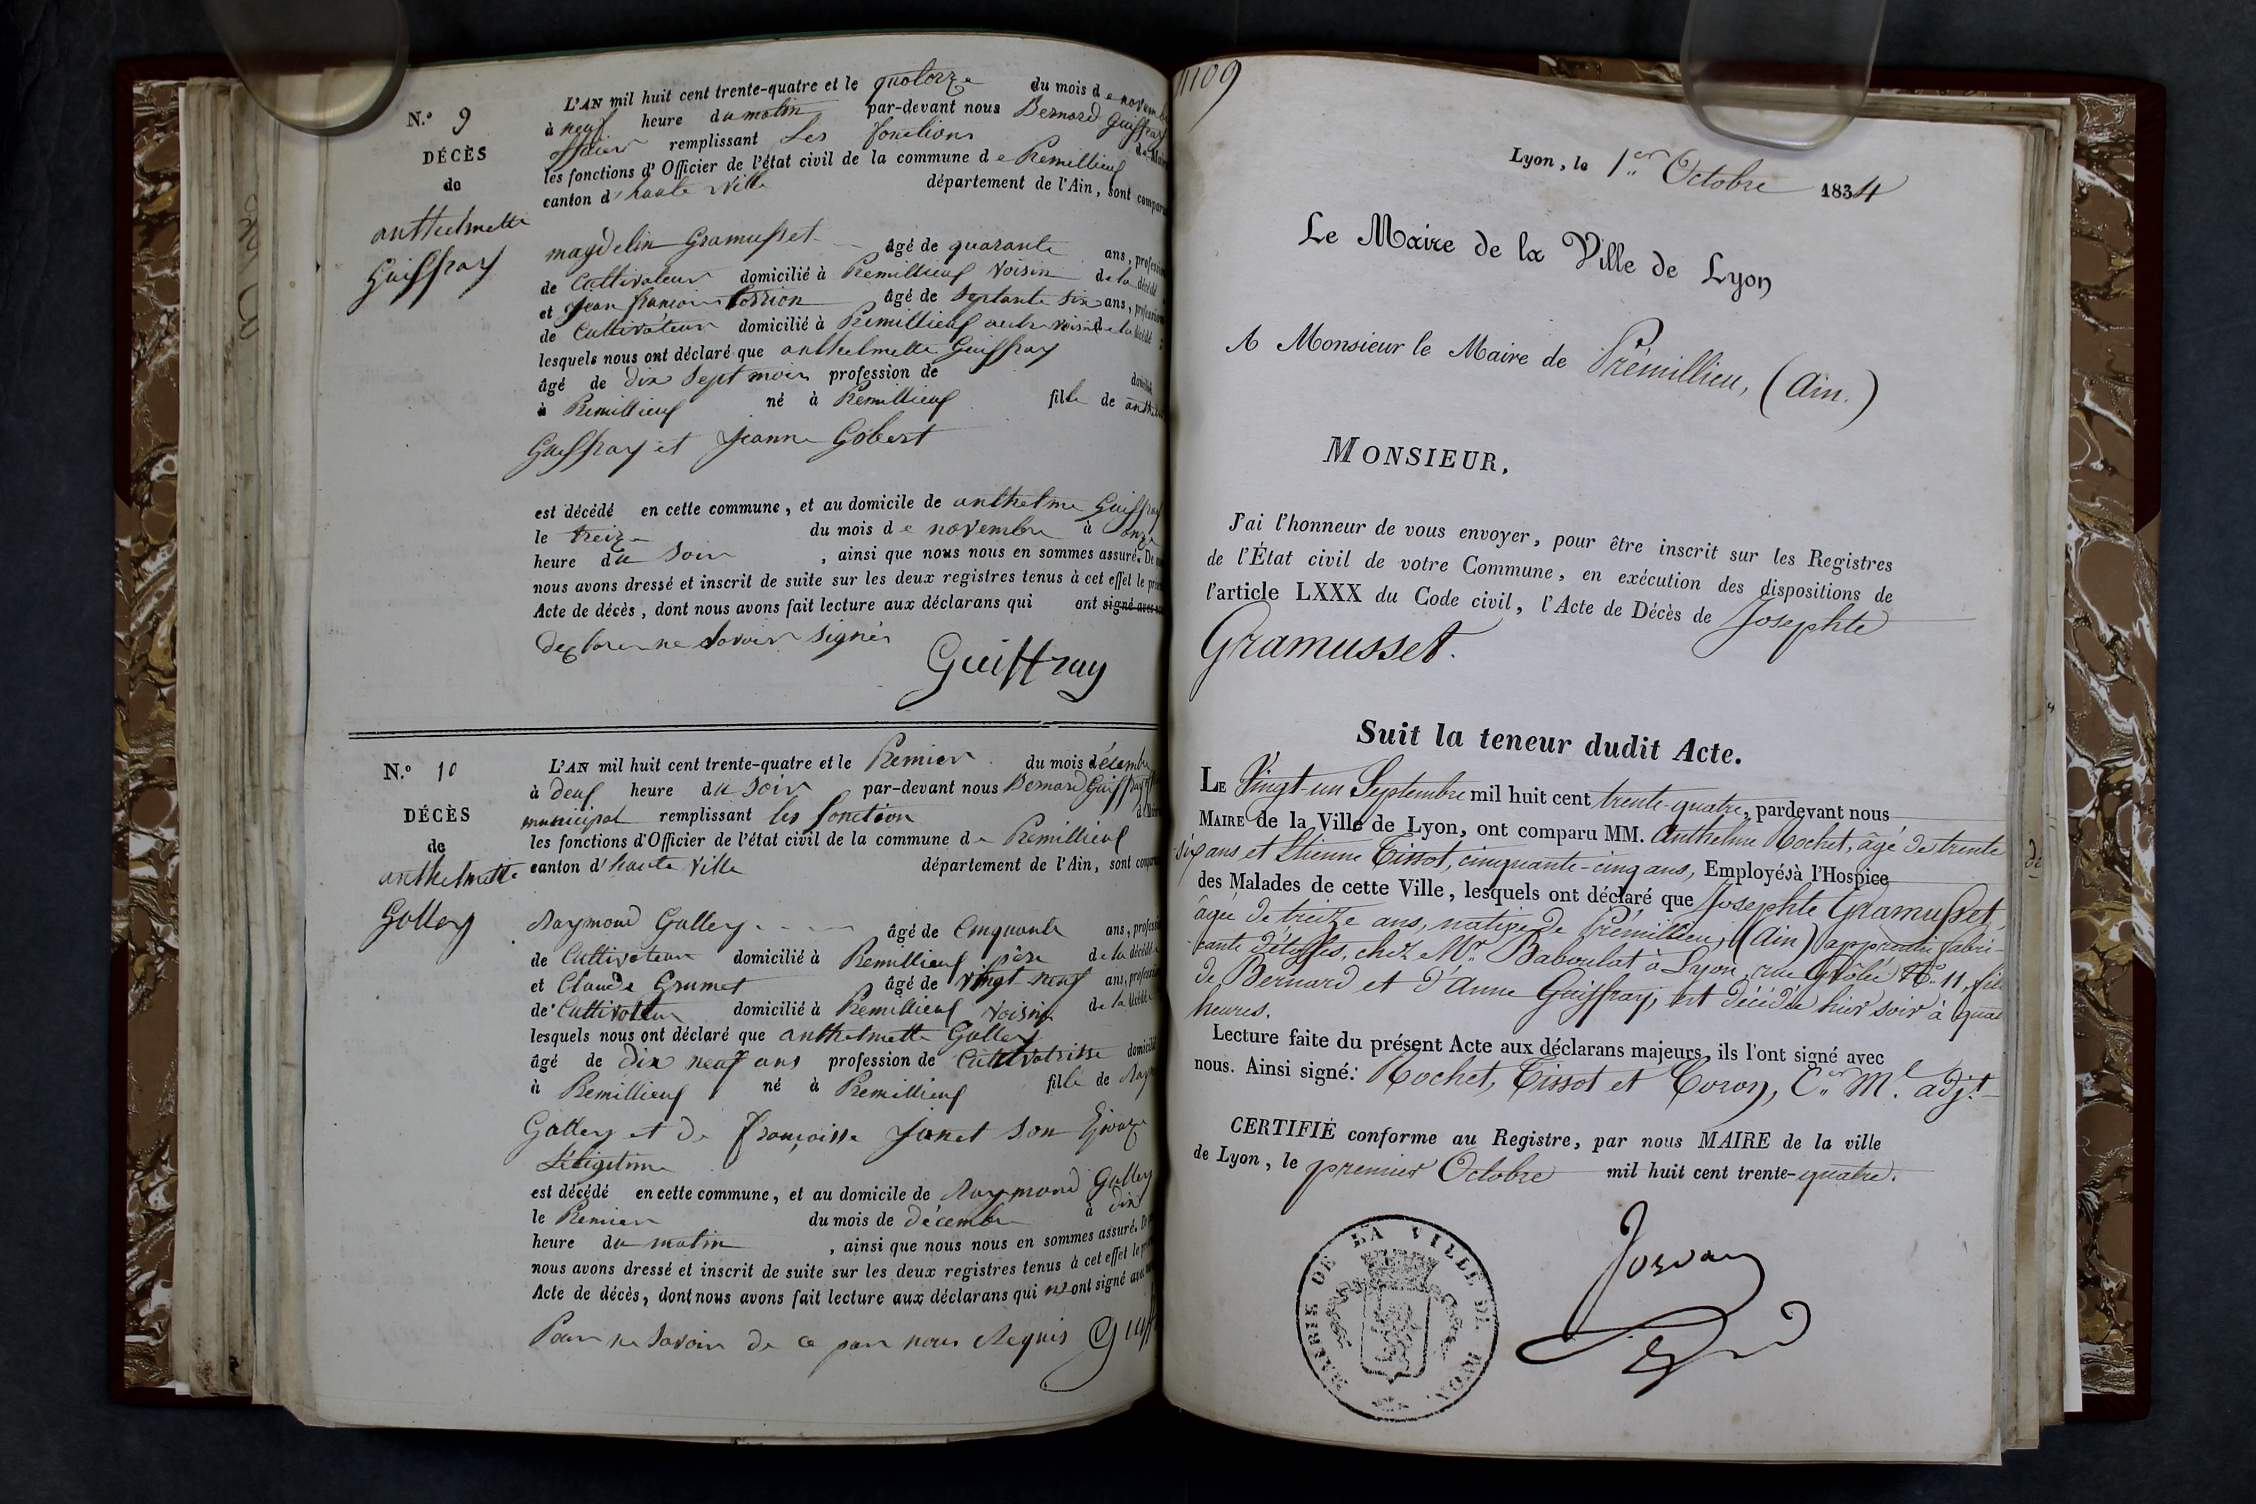 N.o 9
DÉCÈS
de
anthelmette
Guiffray
L'AN mil huit cent trente-quatre et le quatorze du mois de novem
à neuf heure du matin par-devant nous Bernard Guiffray
officier remplissant Les fonctions de Maire
les fonctions d'Officier de l'état civil de la commune de Premillieuf
canton d'haute Ville département de l'Ain, sont comparu
magdelin Gramusset âgé de quarante ans, profession
de Cultivateur domicilié à Premillieuf Voisin de la décédé
et Jean françois âgé de Septante six ans, profession
de Cultivateur domicilié à Premillieuf autre voisin de la décédé
lesquels nous ont déclaré que anthelmette Guiffray
âgé de dix Sept mois profession de domicilié
à Premillieuf né à Premillieuf fille de anth
Guiffray et Jeanne Gobert
est décédé en cette commune, et au domicile de anthelme Guiffray
le treize du mois de novembre à onze
heure du Soir , ainsi que nous nous en sommes assuré. De
nous avons dressé et inscrit de suite sur les deux registres tenus à cet effet le
Acte de décès, dont nous avons fait lecture aux déclarans qui ont signé avec
declaré ne Savoir Signér
Guiffray
N.o 10
DÉCÈS
de
anthelmette
Gallery
L'AN mil huit cent trente-quatre et le Premier du mois décembre
à deuf heure du Soir par-devant nous Bernard Guiffray
municipal remplissant les fonction
les fonctions d'Officier de l'état civil de la commune de Premillieuf
canton d'haute Ville département de l'Ain, sont
Raymond Gallery âgé de Cinquante ans, profession
de Cultivateur domicilié à Premillieuf père de la décédé
et Claude Grumet âgé de vingt neuf ans, profession
de Cultivateur domicilié à Premillieuf Voisin de la décédé
lesquels nous ont déclaré que anthelmette Gallery
âgé de Dix neuf ans profession de Cultivatrisse domicilié
à Premillieuf né à Premillieuf fille de Ray
Gallery et de françoisse Janet Son Epouze
Légitime
est décédé en cette commune, et au domicile de Raymond Gallery
le Premier du mois de décembre à dix
heure du matin , ainsi que nous nous en sommes assuré.
nous avons dressé et inscrit de suite sur les deux registres tenus à cet effet le
Acte de décès, dont nous avons fait lecture aux déclarans qui ne ont signé avec
Pour ne Savoir de ce par nous Requis Guiff
1109
Lyon, le 1er Octobre 1834
Le Maire de la Ville de Lyon
A Monsieur le Maire de Prémillieu, (Ain.)
MONSIEUR,
J'ai l'honneur de vous envoyer, pour être inscrit sur les Registres
de l'État civil de votre Commune, en exécution des dispositions de
l'article LXXX du Code civil, l'Acte de Décès de Josephte
Gramusset.
Suit la teneur dudit Acte.
LE Vingt-un Septembre mil huit cent trente-quatre, pardevant nous
MAIRE de la Ville de Lyon, ont comparu MM. Anthelme Rochet, âgé de trente
six ans et Etienne Tissot, cinquante-cinq ans, Employés à l'Hospice
des Malades de cette Ville, lesquels ont déclaré que Josephte Gramusset,
âgée de treize ans, native de Prémillieu, (Ain) apprentie fabri-
cante d'étoffes, chez Mr. Baboulat à Lyon, rue Grôlée No. 11, fille
de Bernard et d'Anne Guiffray, est décédée hier soir à quatre
heures.
Lecture faite du présent Acte aux déclarans majeurs, ils l'ont signé avec
nous. Ainsi signé: Rochet, Tissot et Coron, Cer. Ml. adjt.
CERTIFIÉ conforme au Registre, par nous MAIRE de la ville
de Lyon, le premier Octobre mil huit cent trente-quatre.
MAIRIE DE LA VILLE DE LYON